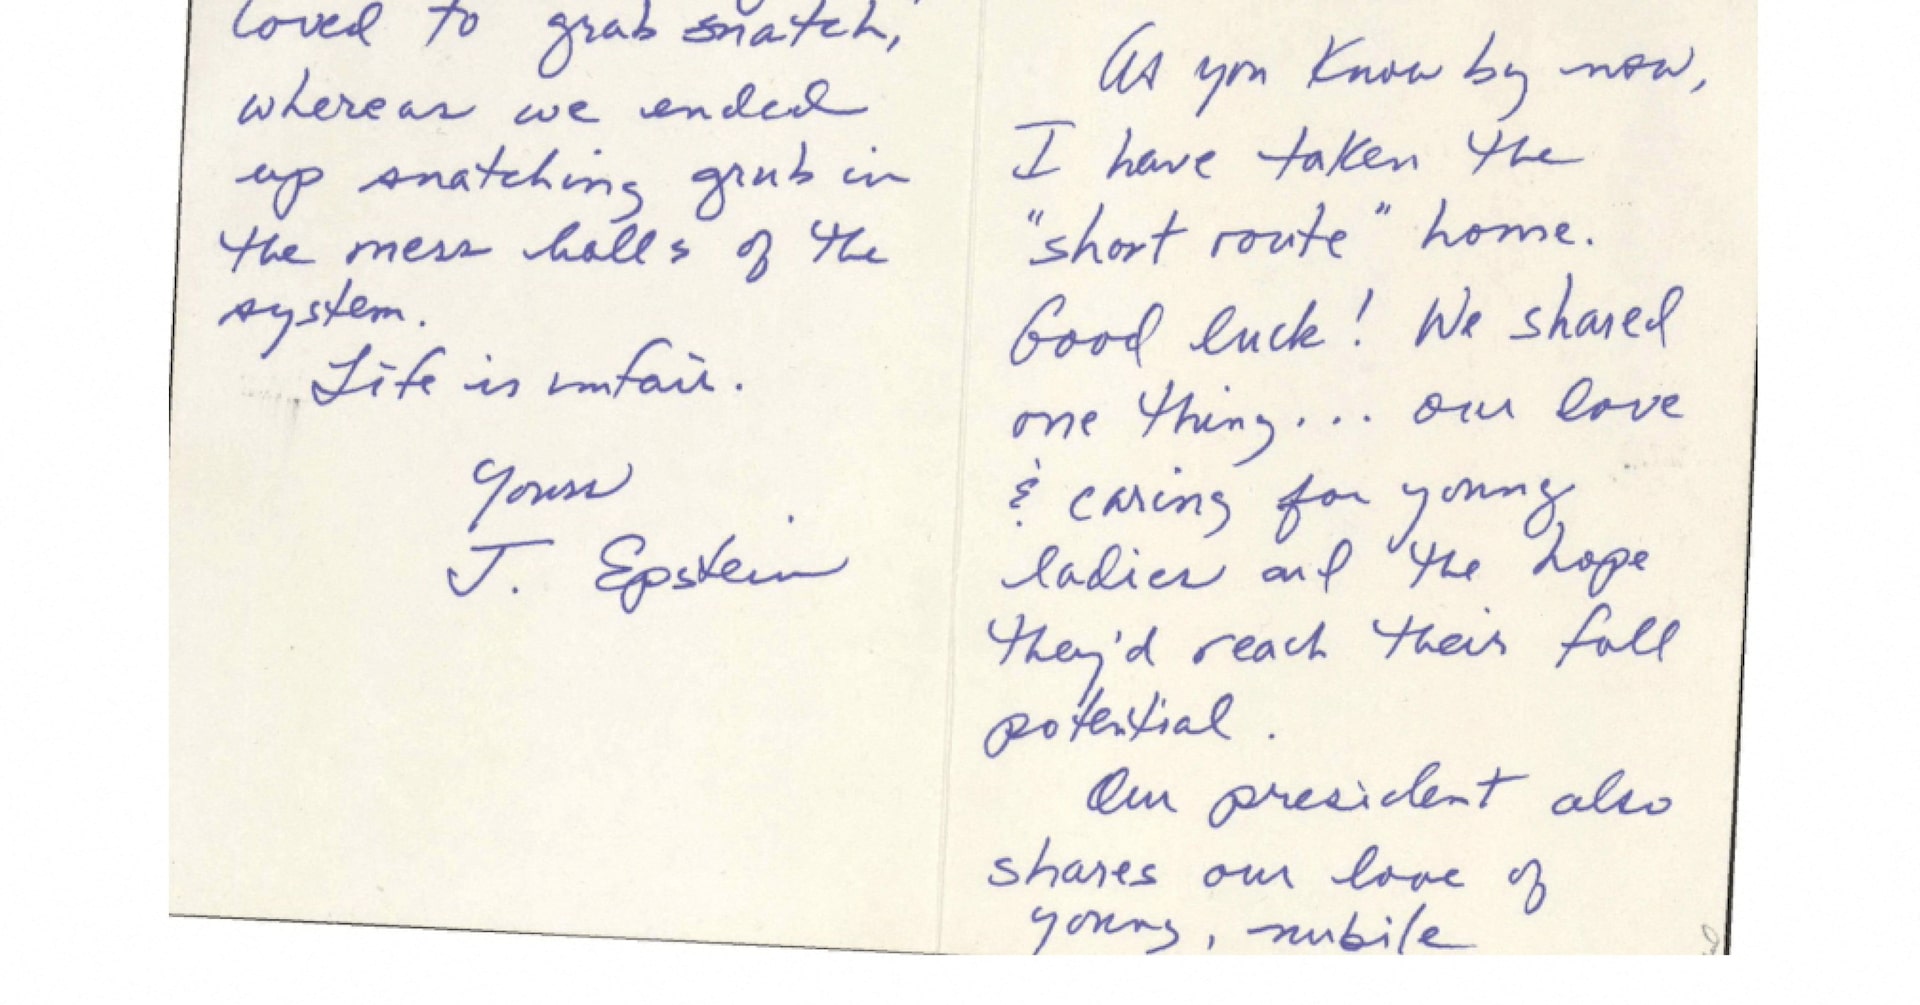 loved to grab snatch,
whereas we ended
up snatching grub in
the mess halls of the
system.
Life is unfair.
Yours
J. Epstein
As you know by now,
I have taken the
"short route" home.
Good luck! We shared
one thing... our love
& caring for young
ladies and the hope
they'd reach their full
potential.
Our president also
shares our love of
young, nubile